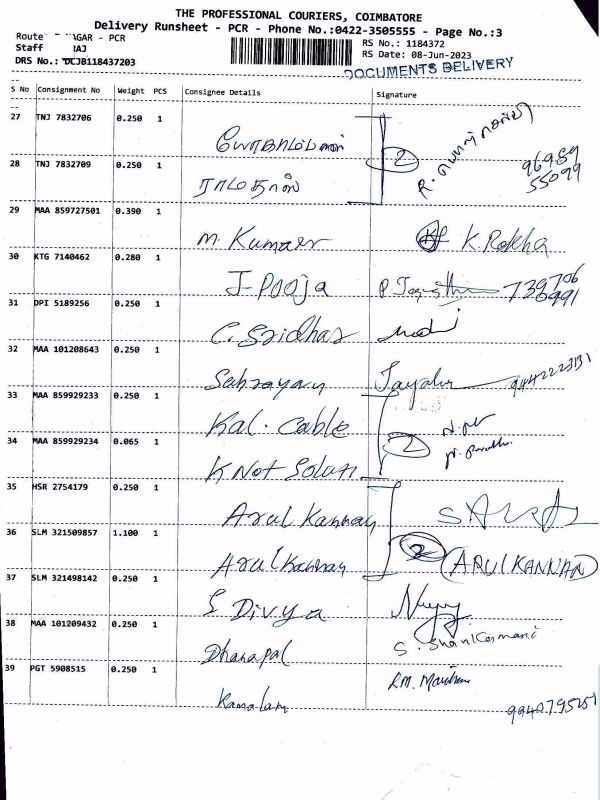 THE PROFESSIONAL COURIERS, COIMBATORE
Delivery Runsheet - PCR - Phone No.:0422-3505555 - Page No.:3
Route AGAR - PCR
Staff AJ
DRS No.: DCJB118437203
RS No.: 1184372
RS Date: 08-Jun-2023
DOCUMENTS DELIVERY
S No Consignment No Weight PCS Consignee Details Signature
27 TNJ 7832706 0.250 1
28 TNJ 7832709 0.250 1
2
R.
96989
55099
29 MAA 859727501 0.390 1
M. Kumaer K. Rekha
30 KTG 7140462 0.280 1
J-Pooja
31 DPI 5189256 0.250 1
C. Sridhar
32 MAA 101208643 0.250 1
9442223131
33 MAA 859929233 0.250 1
Kal. Cable
2
34 MAA 859929234 0.065 1
K Not Solan
35 HSR 2754179 0.250 1
Arul Kannan
36 SLM 321509857 1.100 1
2
Arul Kannan (ARULKANNAN)
37 SLM 321498142 0.250 1
S Divya
38 MAA 101209432 0.250 1
Dhanapal
39 PGT 5908515 0.250 1
Kamalam